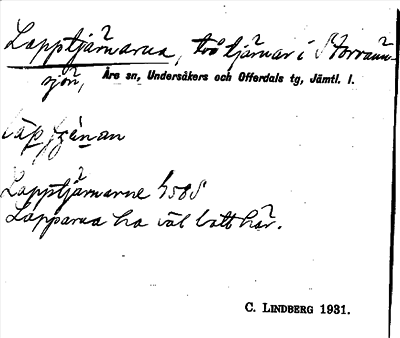 Lapptjärnarna, två tjärnar i Storvänn-
sjön, Åre sn, Undersåkers och Offerdals tg, Jämtl. l.
làptję̀nan
Lapptjärnarne GSbS
Lapparna ha väl bott här.
C. LINDBERG 1931.